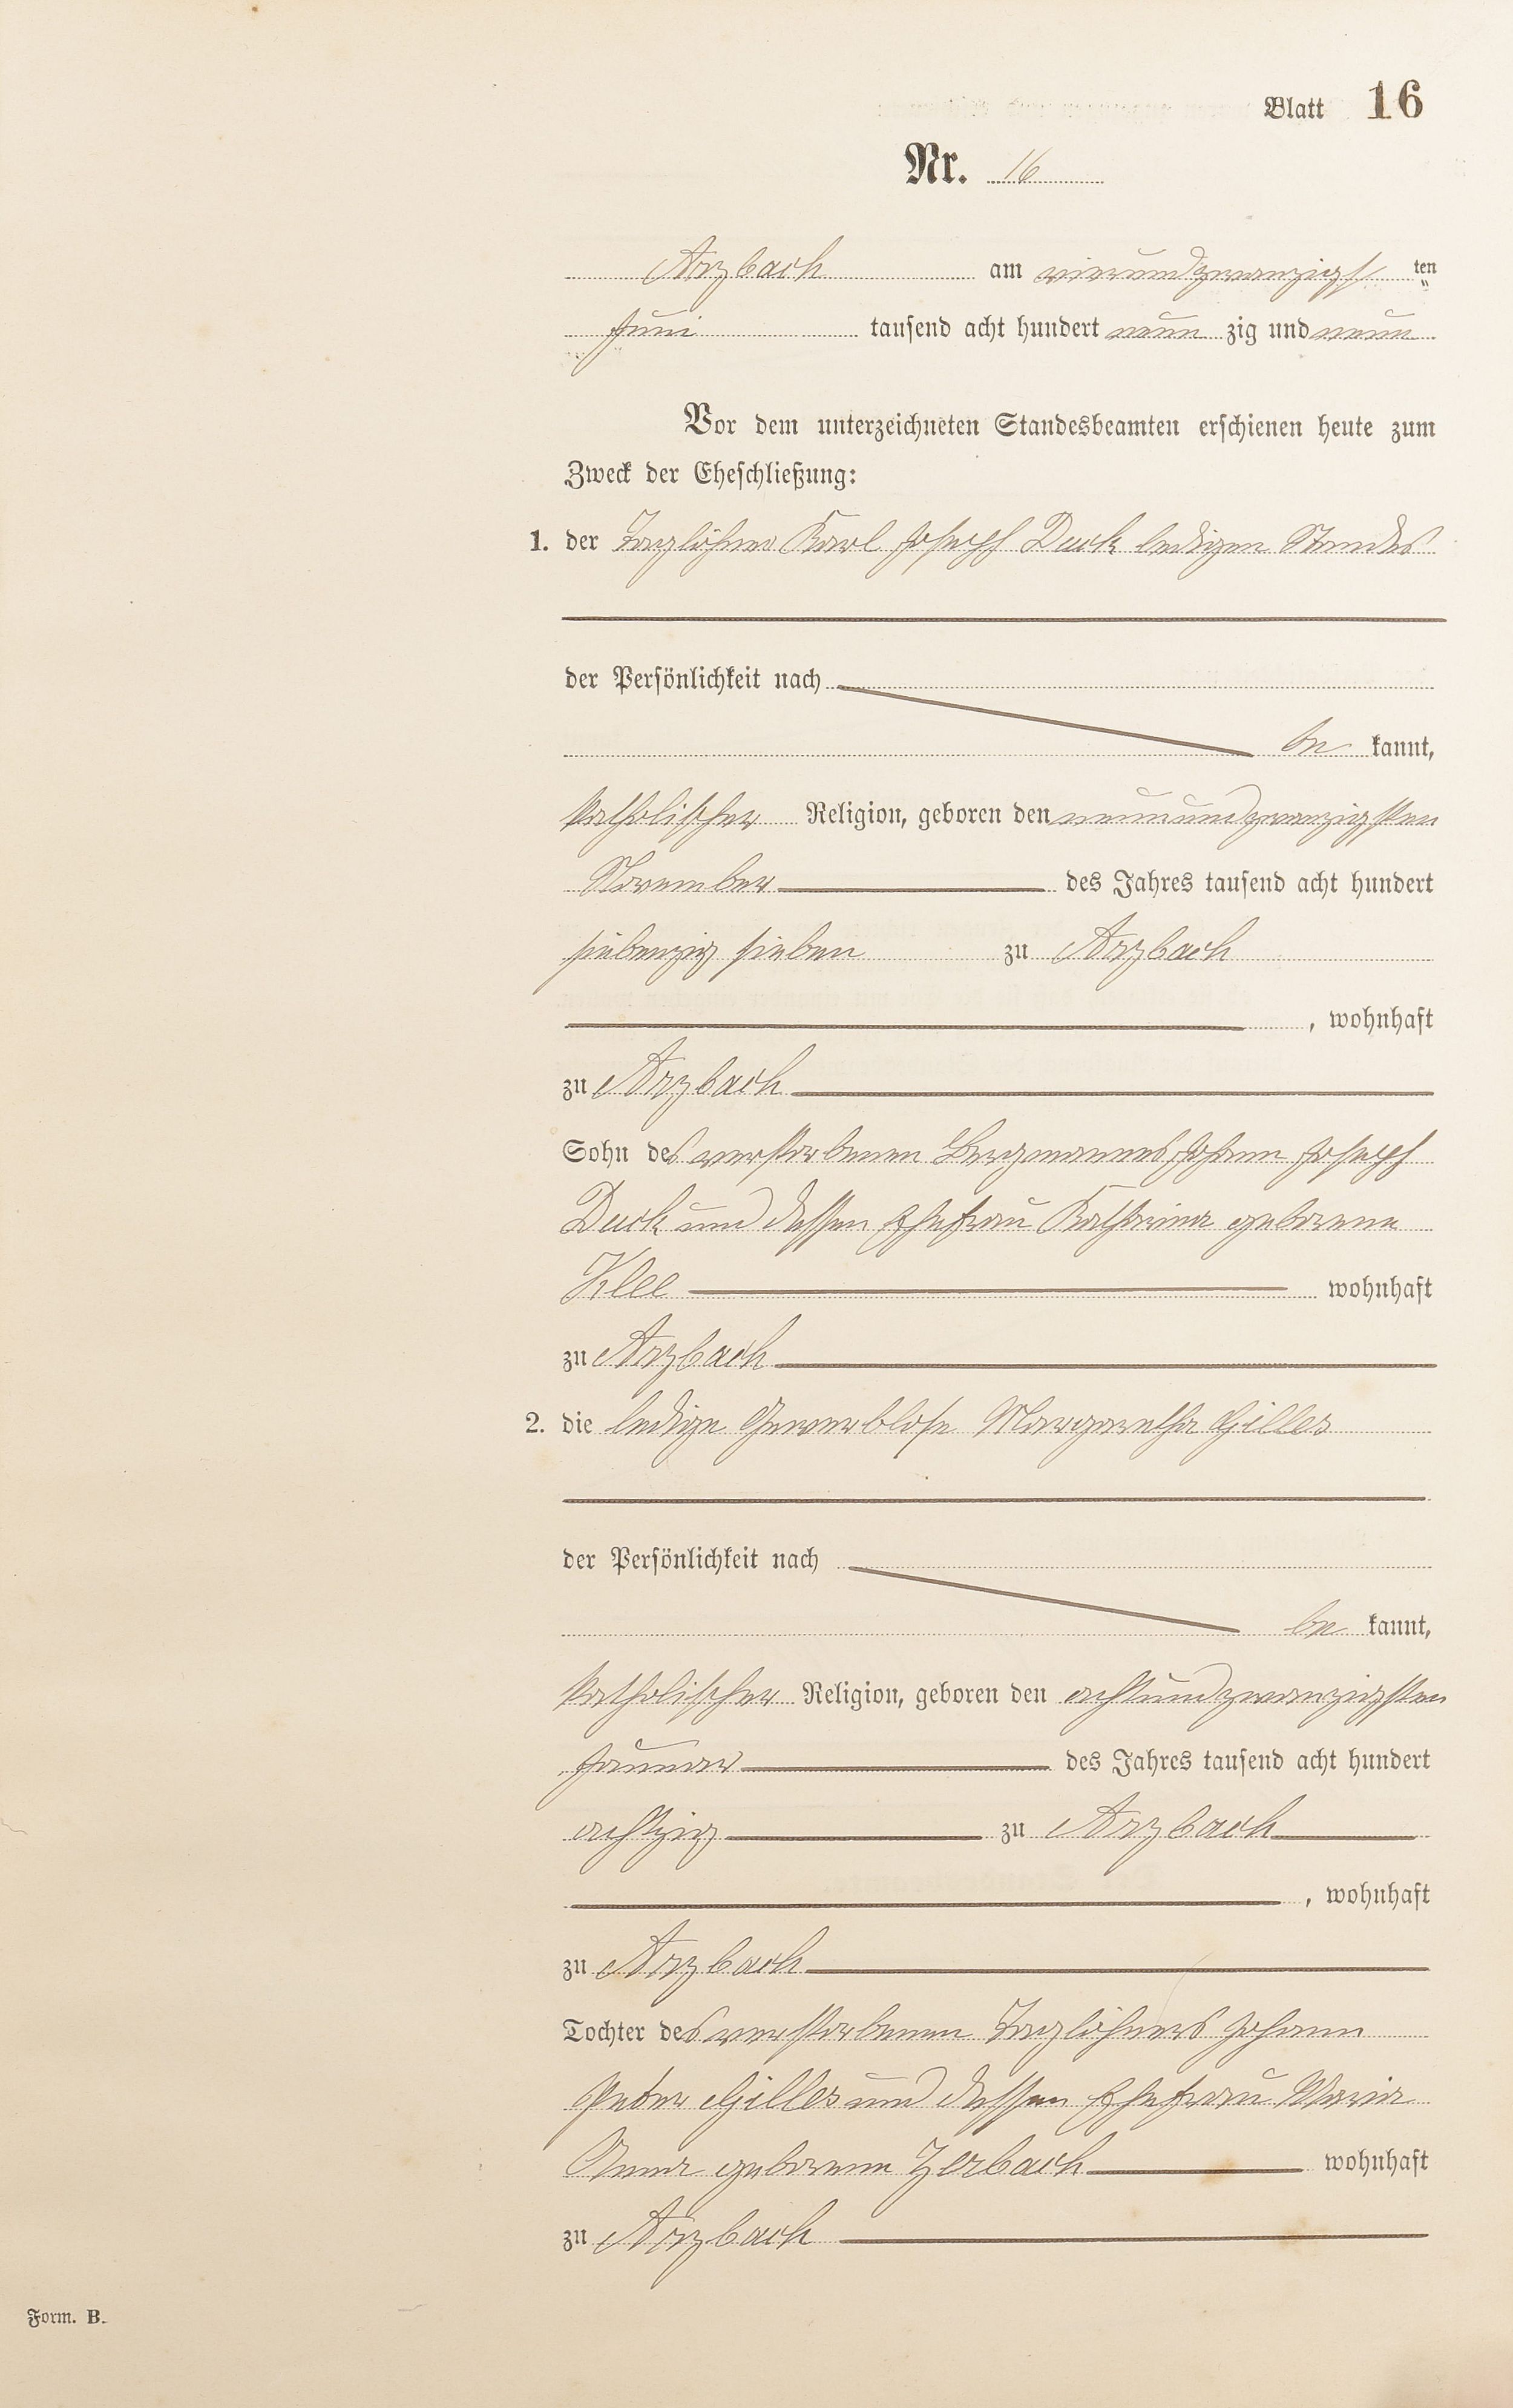 Blatt 16
Nr. 16
Arzbach am vierundzwanzigst ten
Juni tausend acht hundert neun zig und neun
Vor dem unterzeichneten Standesbeamten erschienen heute zum
Zweck der Eheschließung:
1. der Taglöhner Karl Joseph Duck ledigen Standes
der Persönlichkeit nach
be kannt,
katholischer Religion, geboren den neunundzwanzigsten
November des Jahres tausend acht hundert
siebenzig sieben zu Arzbach
, wohnhaft
zu Arzbach
Sohn des verstorbenen Bergmannes Johann Joseph
Duck und dessen Ehefrau Katharina geborene
Klee wohnhaft
zu Arzbach
2. die ledige Gewerblose Margaretha Gilles
der Persönlichkeit nach
be kannt,
katholischer Religion, geboren den achtundzwanzigsten
Januar des Jahres tausend acht hundert
achtzig zu Arzbach
, wohnhaft
zu Arzbach
Tochter des verstorbenen Taglöhners Johann
Peter Gilles und dessen Ehefrau Maria
Anna geborene Zerbach wohnhaft
zu Arzbach
Form. B.